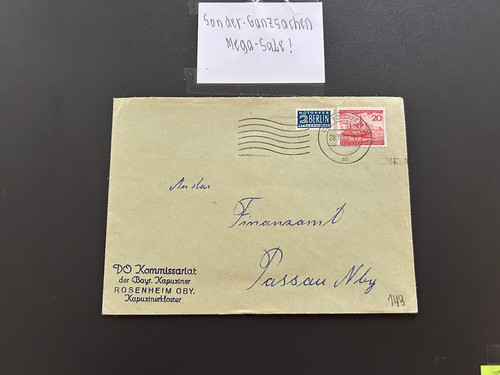 Sonder-Ganzsachen
Mega-Sale!
NOTOPFER
2 BERLIN
STEUERMARKE
20
28
ab
An das
Finanzamt
Passau Nby
DO Kommissariat
der Bayr. Kapuziner
ROSENHEIM OBY.
Kapuzinerkloster
149